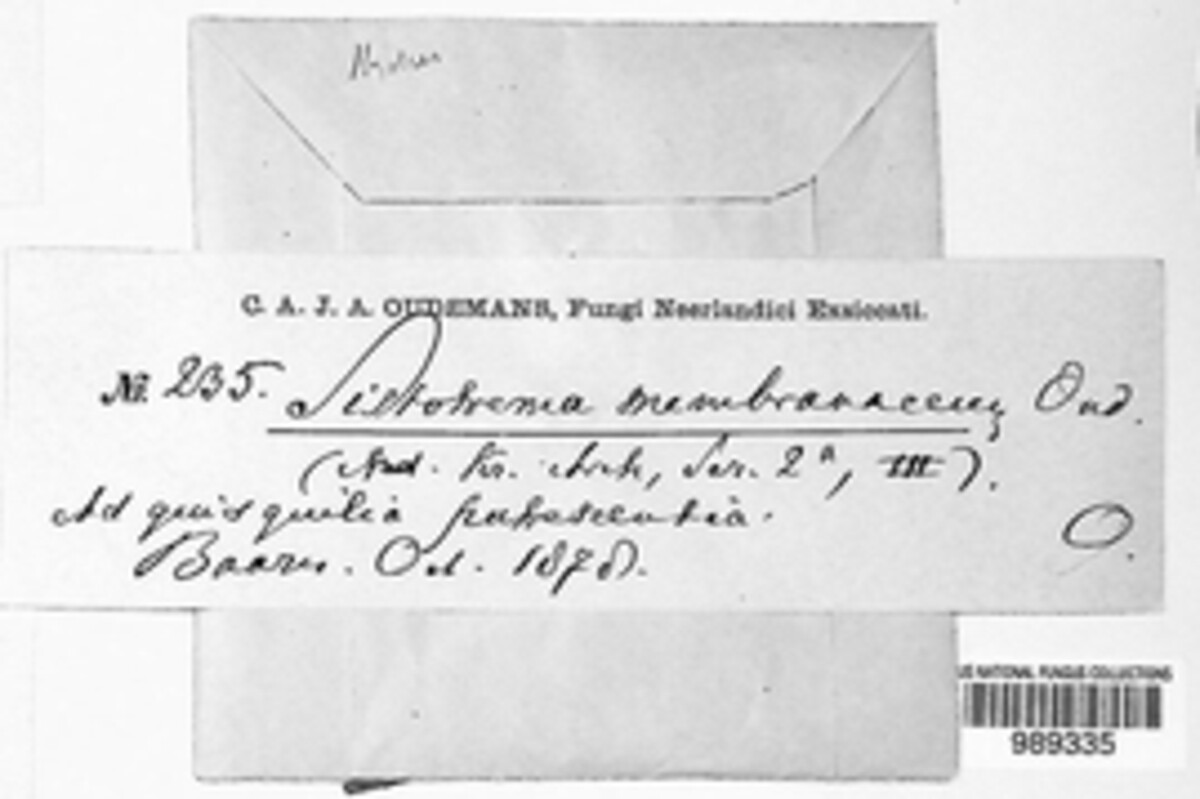 C. A. J. A. OUDEMANS, Fungi Neerlandici Exsiccati.
№ 235. Sistotrema membranaceum Oud.
(Ned. Kr. Arch, Ser. 2ª, III).
Ad quisquilia putrescentia.
Baarn. Oct. 1878.
O.
US NATIONAL FUNGUS COLLECTIONS
989335